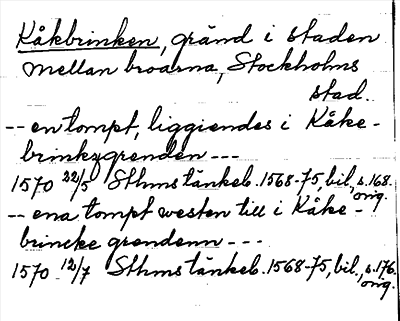 Kåkbrinken, gränd i staden
mellan broarna, Stockholms
stad.
-- en tompt, liggiendes i Kåke-
brinkz grenden ---
1570 22/5 Sthms tänkeb. 1568-75, bil., s. 168.
orig.
-- ena tompt westen till i Kåke-
brincke grendenn ---
1570 12/7 Sthms tänkeb. 1568-75, bil., s. 176.
orig.